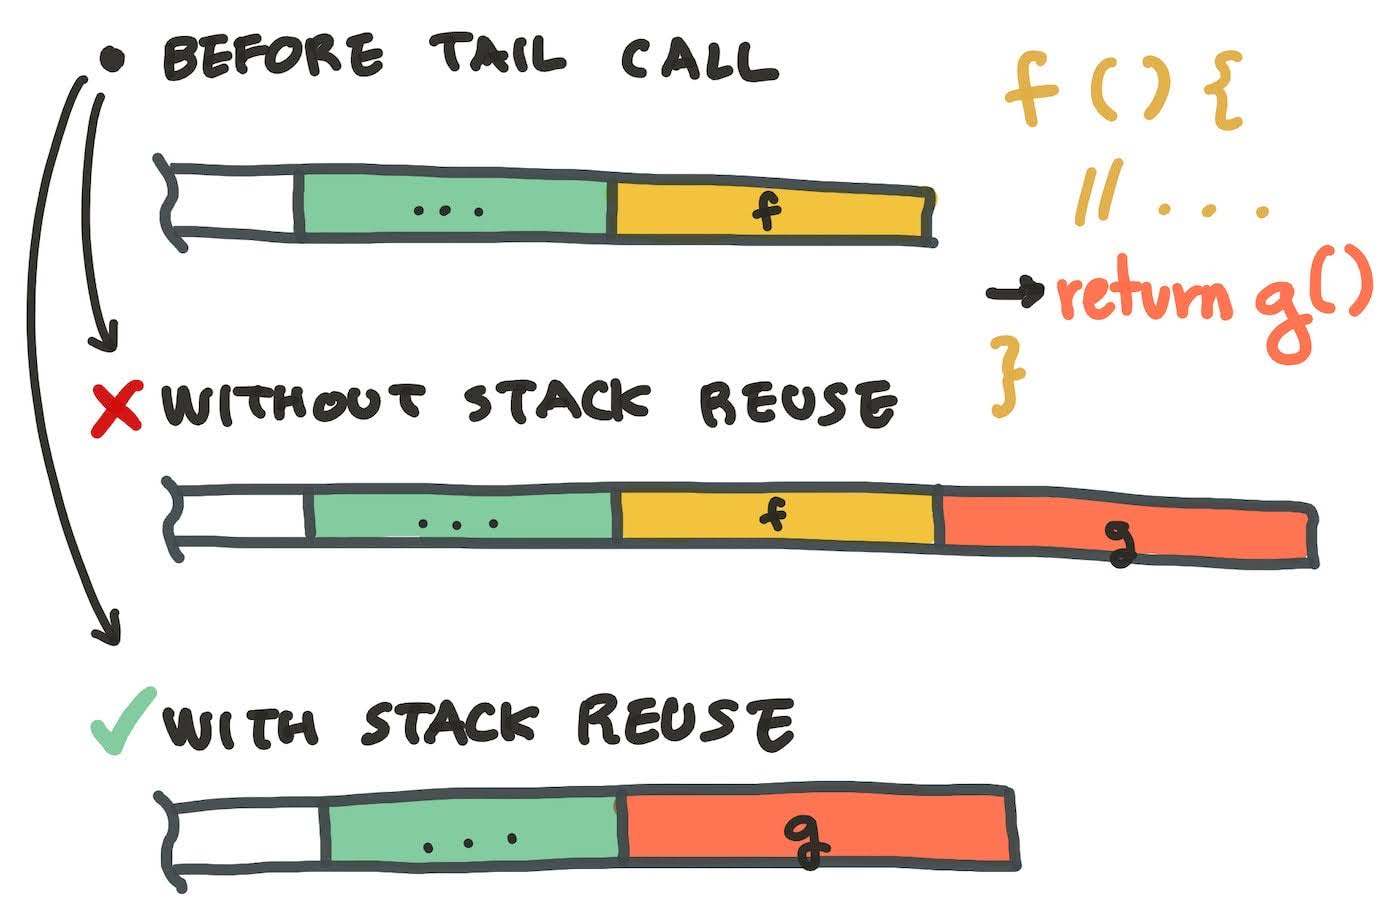 BEFORE TAIL CALL
f () {
// ...
return g()
}
... f
WITHOUT STACK REUSE
... f g
WITH STACK REUSE
... g